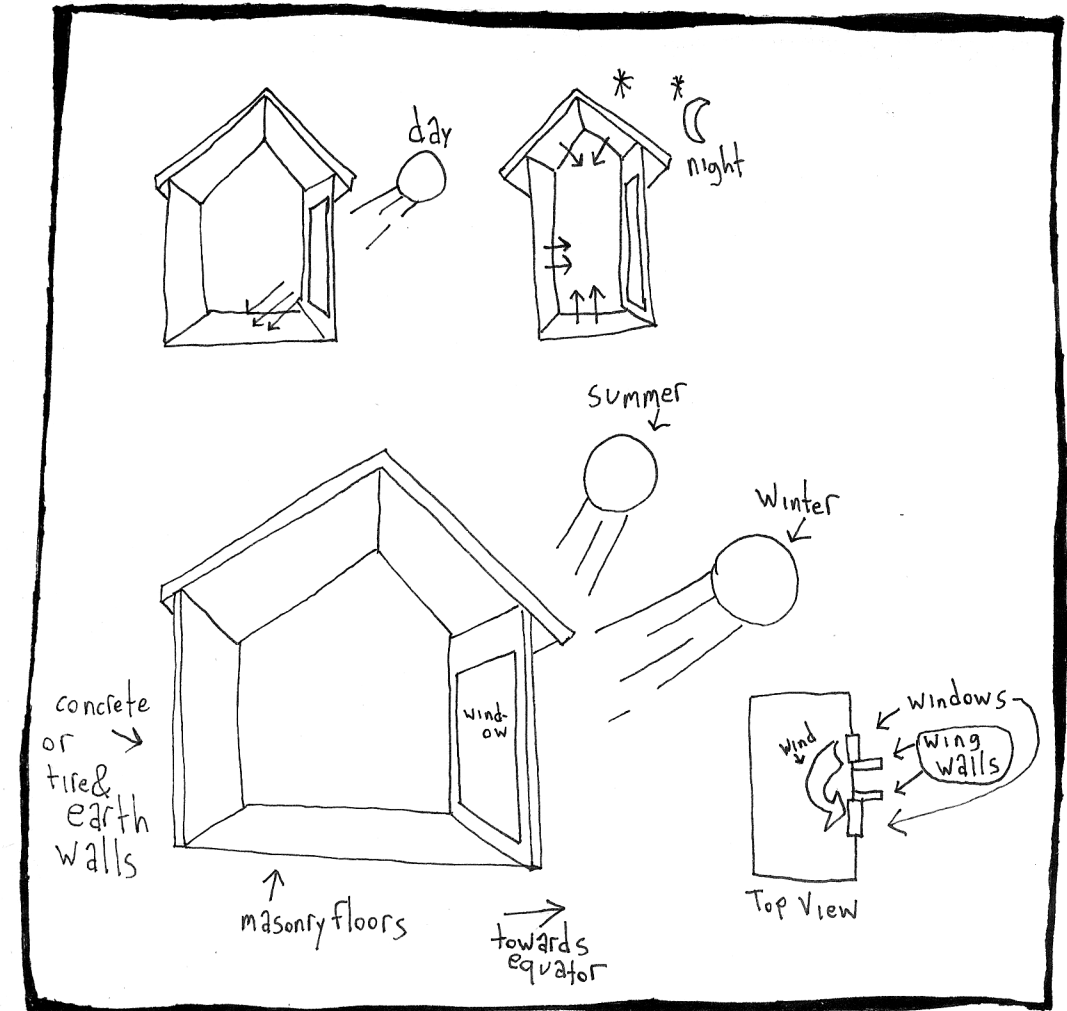 day
night
summer
Winter
wind-
ow
concrete
or
tire&
earth
walls
masonry floors
towards
equator
windows
wing
walls
wind
Top View